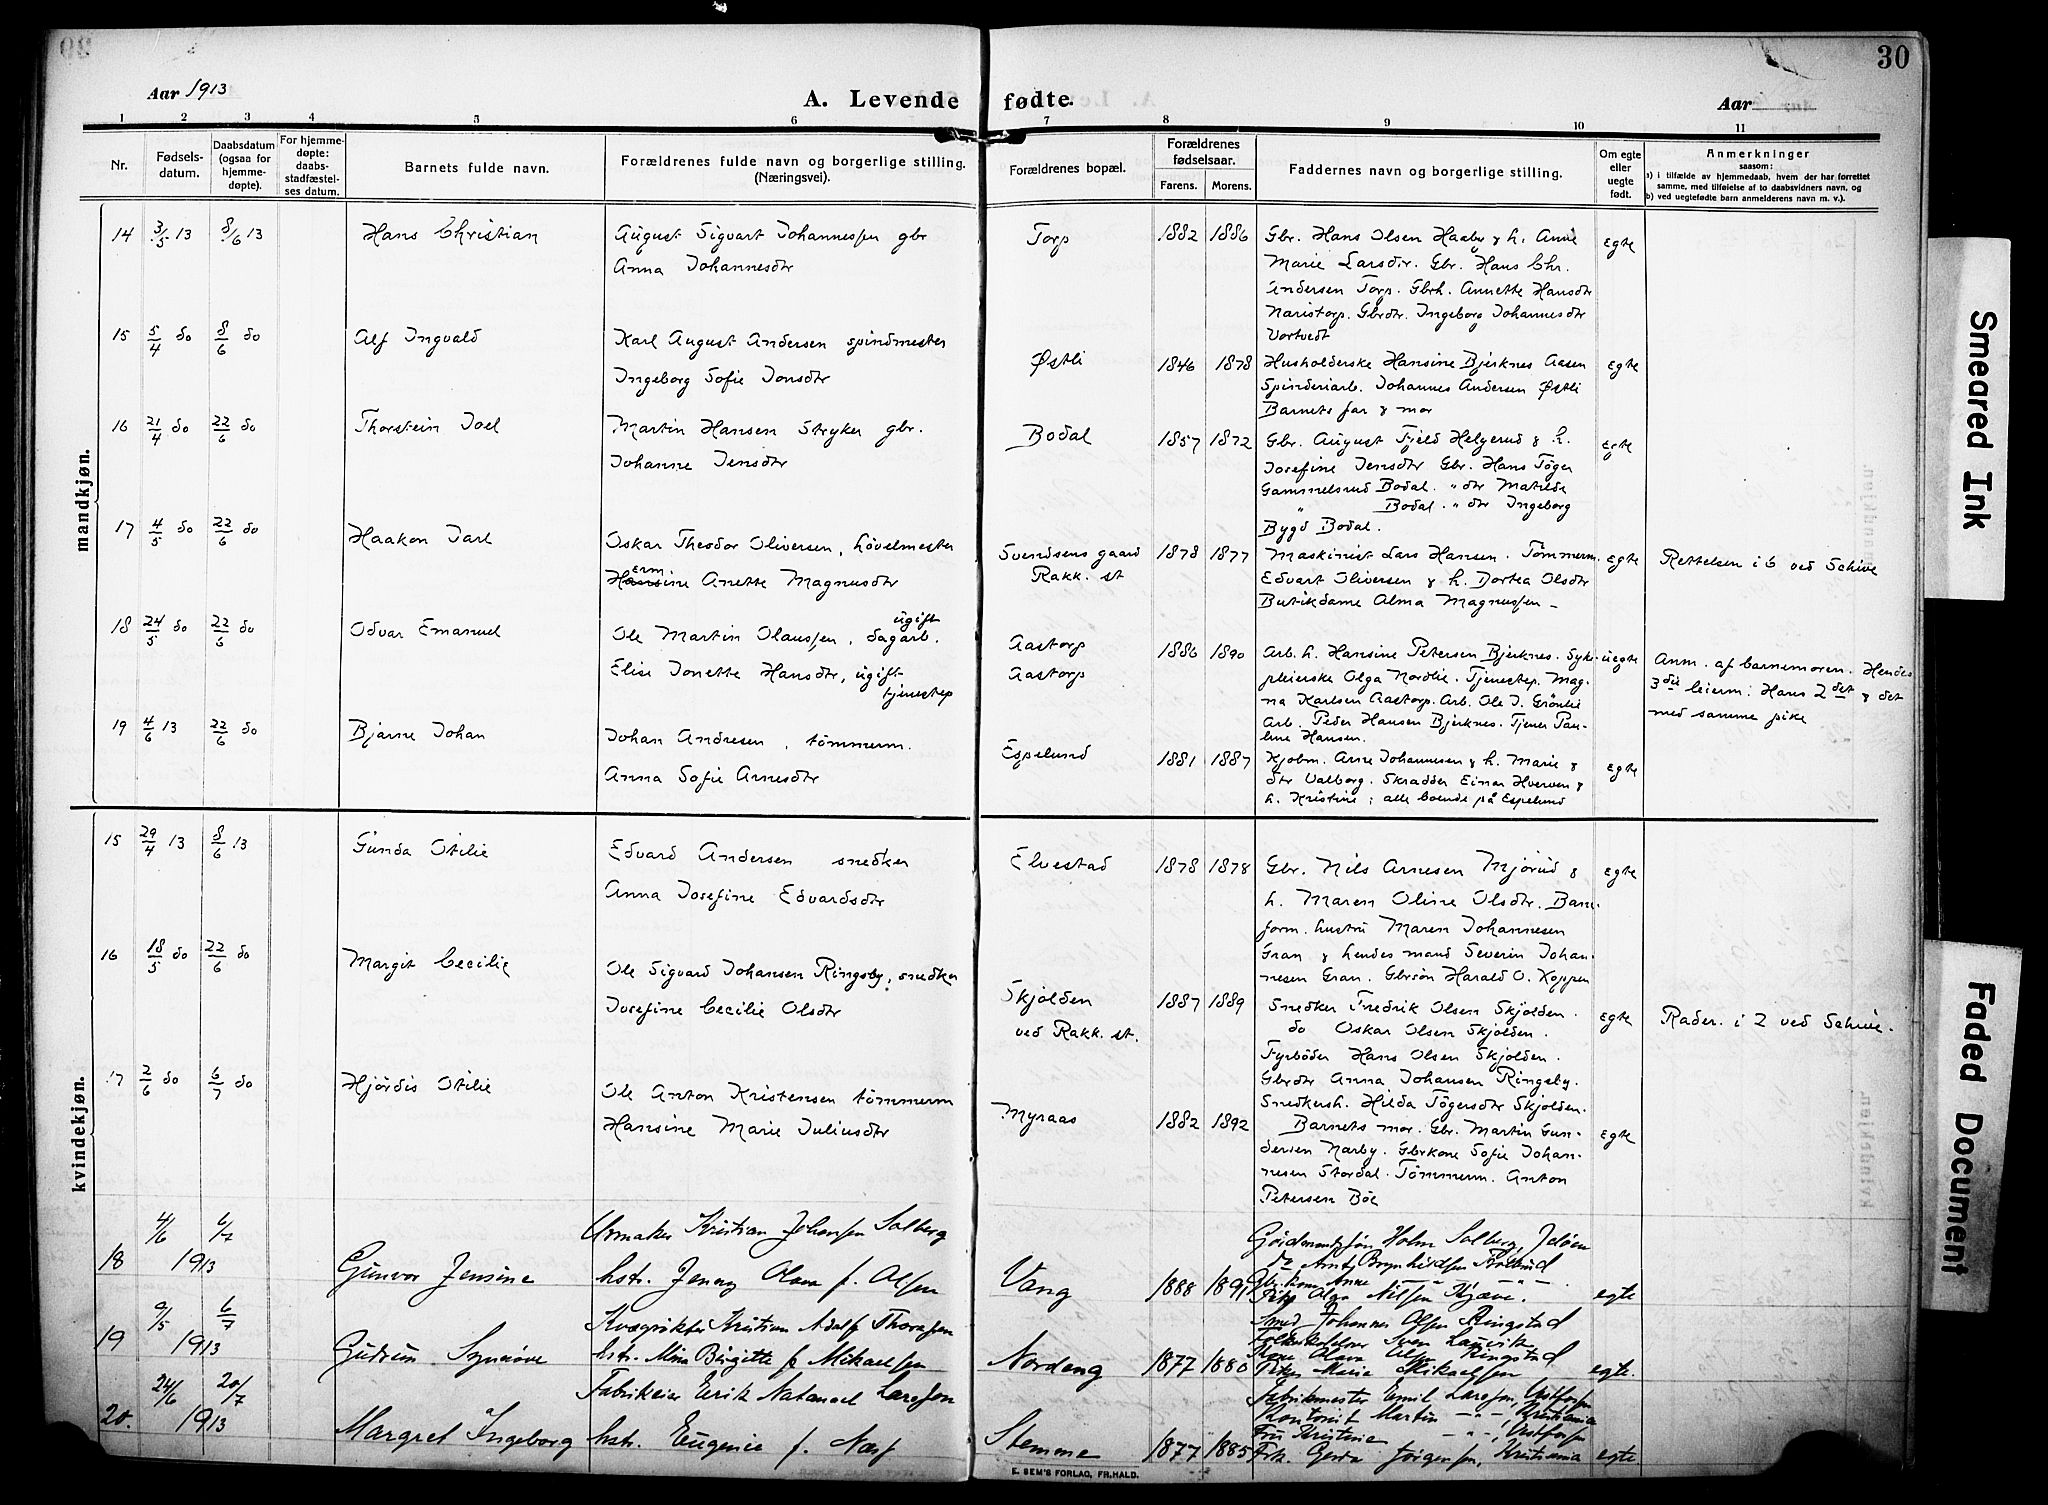 30
Aar 1913
A. Levende fødte.
Aar
1 2 3 4 5 6 7 8 9 10 11
Nr.
Fødsels-
datum.
Daabsdatum
(ogsaa for
hjemme-
døpte).
For hjemme-
døpte:
daabs
stadfæstel-
ses datum.
Barnets fulde navn.
Forældrenes fulde navn og borgerlige stilling.
(Næringsvei).
Forældrenes bopæl.
Forældrenes
fødselsaar.
Farens. Morens.
Faddernes navn og borgerlige stilling.
Om egte
eller
uegte
født.
Anmerkninger
saasom:
a) i tilfælde av hjemmedaab, hvem der har forrettet
samme, med tilføielse af to daabsvidners navn, og
b) ved uegtefødte barn anmelderens navn m. v.).
mandkjøn.
14 3/5 13 8/6 13 Hans Christian
August Sigvart Johannessen gbr
Anna Johannesdtr
Torp 1882 1886
Gbr. Hans Olsen Haaby & h. Anne
Marie Larsdtr. Gbr. Hans Chr.
Andersen Torp. Gbrh. Annette Hansdtr
Naristorp. Gbrdtr. Ingeborg Johannesdtr
Vortvedt
egte
15 5/4 do 8/6 do Alf Ingvald
Karl August Andersen spindmester
Ingeborg Sofie Jonsdtr
Østli 1846 1878
Husholderske Hansine Bjerknes Aasen
Spinderiarb. Johannes Andersen Østli
Barnets far & mor
egte
16 21/4 do 22/6 do Thorstein Joel
Martin Hansen Stryker gbr.
Johanne Jensdtr
Bodal 1857 1872
Gbr. August Fjeld Helgerud & h.
Josefine Jensdtr Gbr. Hans Töger
Gammelsrud Bodal. " dtr Matilde
" Bodal. " dtr Ingeborg
Bygd Bodal.
egte
17 4/5 do 22/6 do Haakon Jarl
Oskar Theodor Oliversen, høvelmester
Erm
Hansine Anette Magnusdtr
Svendsens gaard
Rakk. st
1878 1877
Maskinist Lars Hansen. Tømmerm.
Edvart Oliversen & h. Dortea Olsdtr
Butikdame Alma Magnussen –
egte
Rettelsen i 6 ved Schive
18 24/5 do 22/6 do Odvar Emanuel
ugift
Ole Martin Olaussen, sagarb.
Elise Jonette Hansdtr, ugift
tjenestep
Aastorp
Aastorp
1886 1890
Arb. h. Hansine Petersen Bjerknes. Syke
pleierske Olga Nordlie. Tjenestep. Mag-
na Karlsen Aastorp. Arb. Ole J. Grönlie
Arb. Peder Hansen Bjerknes. Tjener Pau-
line Hansen.
uegte
Anm. af barnemoren. Hendes
3die leierm: Hans 2det & det
med samme pike
19 4/6 13 22/6 do Bjarne Johan
Johan Andresen, tømmerm.
Anna Sofie Arnesdtr
Espelund 1881 1887
Kjøbm. Arne Johannesen & h. Marie &
dtr Valborg. Skrædder Einar Hverven &
h. Kristine; alle boende på Espelund
egte
kvindekjøn.
15 29/4 13 8/6 13 Gunda Otilie
Edvard Andersen snedker
Anna Josefine Edvardsdtr
Elvestad 1878 1878
Gbr. Nils Arnesen Mjørud &
h. Maren Oline Olsdtr. Bane-
form. hustru Maren Johannesen
Gran & hendes mand Severin Johan-
nesen Gran. Gbrsön Harald O. Koppen
egte
16 18/5 do 22/6 do Margit Cecilie
Ole Sigvard Johansen Ringsby, snedker
Josefine Cecilie Olsdtr
Skjolden
ved Rakk. st.
1887 1889
Snedker Fredrik Olsen Skjolden.
do Oskar Olsen Skjolden.
Fyrbøder Hans Olsen Skjolden.
Gbrdtr Anna Johansen Ringsby.
Snedkersh. Hilda Tögersdtr Skjolden.
egte
Rader. i 2 ved Schive.
17 2/6 do 6/7 do Hjørdis Otilie
Ole Anton Kristensen tømmerm
Hansine Marie Juliusdtr
Myraas 1882 1892
Barnets mor. Gbr. Martin Gun-
dersen Narby. Gbrkone Sofie Johan-
nesen Stordal. Tømmerm. Anton
Petersen Böe
egte
18 4/6 6/7 1913 Gunvor Jensine
Urmaker Kristian Johansen Solberg
hstr. Jenny Olava f. Olsen
Vang 1888 1891
Holm Solberg, Jeløen
Gbr.kone Anne – " –
Pike Olga Nilsen
egte
19 9/5 6/7 1913 Gudrun Synnøve
Kvægrøkter Kristian Adolf Thoresen
hstr. Mina Birgitte f. Mikaelsen
Nordeng 1877 1880
Smed Johannes Olsen Ringstad
Sven Lauvik
Kone Olava Ringstad
Pike Marie Mikaelsen
egte.
20. 24/6 20/7 1913 Margret Ingeborg
Fabrikeier Erik Natanael Larsson
hstr. Eugenie f. Næs
Stemme 1877 1885
Fabrikmester Emil Larsson,
Kontorist Martin – " –, Kristiania
Fru Kristine – " –,
Frk. Gerda Jörgensen, Kristiania
egte.
E. SEM'S FORLAG, FR.HALD.
Smeared Ink
Faded Document